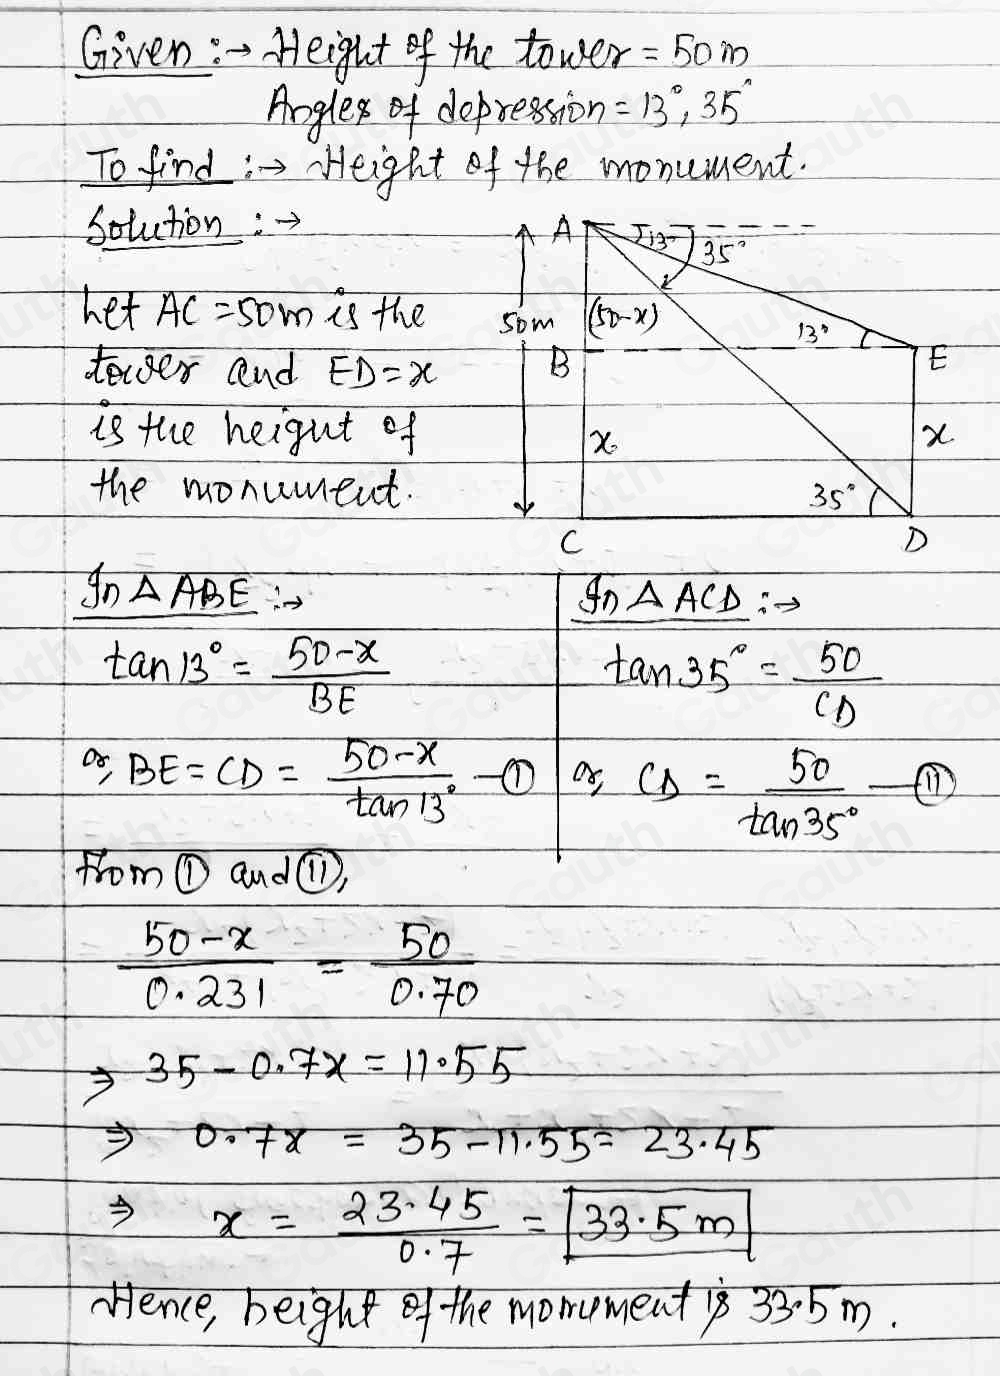 Given :→ Height of the tower = 50m
Angles of depression = 13°, 35°
To find :→ Height of the monument.
Solution :→
Let AC = 50m is the
tower and ED = x
is the height of
the monument.
A 13° 35°
50m (50-x) 13°
B E
x. x
35°
C D
In △ ABE :→
tan 13° = 50-x / BE
or, BE = CD = 50-x / tan 13° —(I)
In △ ACD :→
tan 35° = 50 / CD
or, CD = 50 / tan 35° —(II)
From (I) and (II),
50-x / 0.231 = 50 / 0.70
⇒ 35 - 0.7x = 11.55
⇒ 0.7x = 35 - 11.55 = 23.45
⇒ x = 23.45 / 0.7 = 33.5 m
Hence, height of the monument is 33.5 m.
Gauth